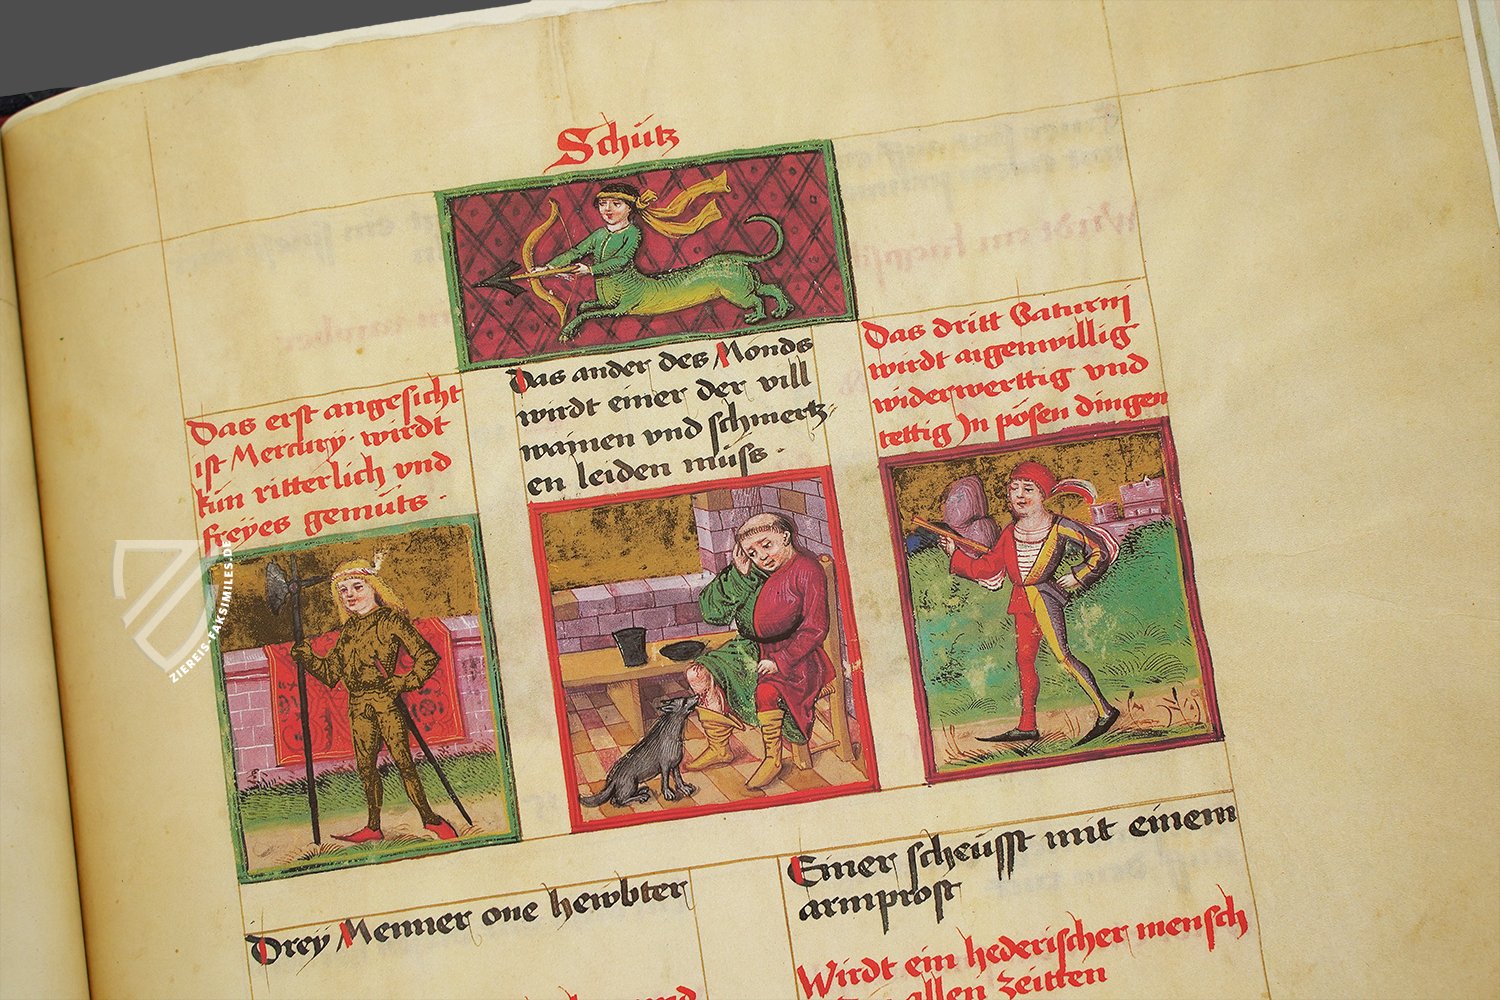 Schütz
Das erst angesicht
ist Mercury · wirdt
kün ritterlich vnd
freyes gemüts ·
Das ander des Monds
wirdt einer der vill
wainen vnd schmertz
en leiden müss ·
Das dritt Saturnj
wirdt aigenwillig
widerwerttig vnd
tettig Jn pösen dingen
Drey Menner one hewbter
vnd
Einer scheüsst mit einem
armprost
Wirdt ein hederischer mensch
allen Zeitten
ZIEREIS-FAKSIMILES.DE